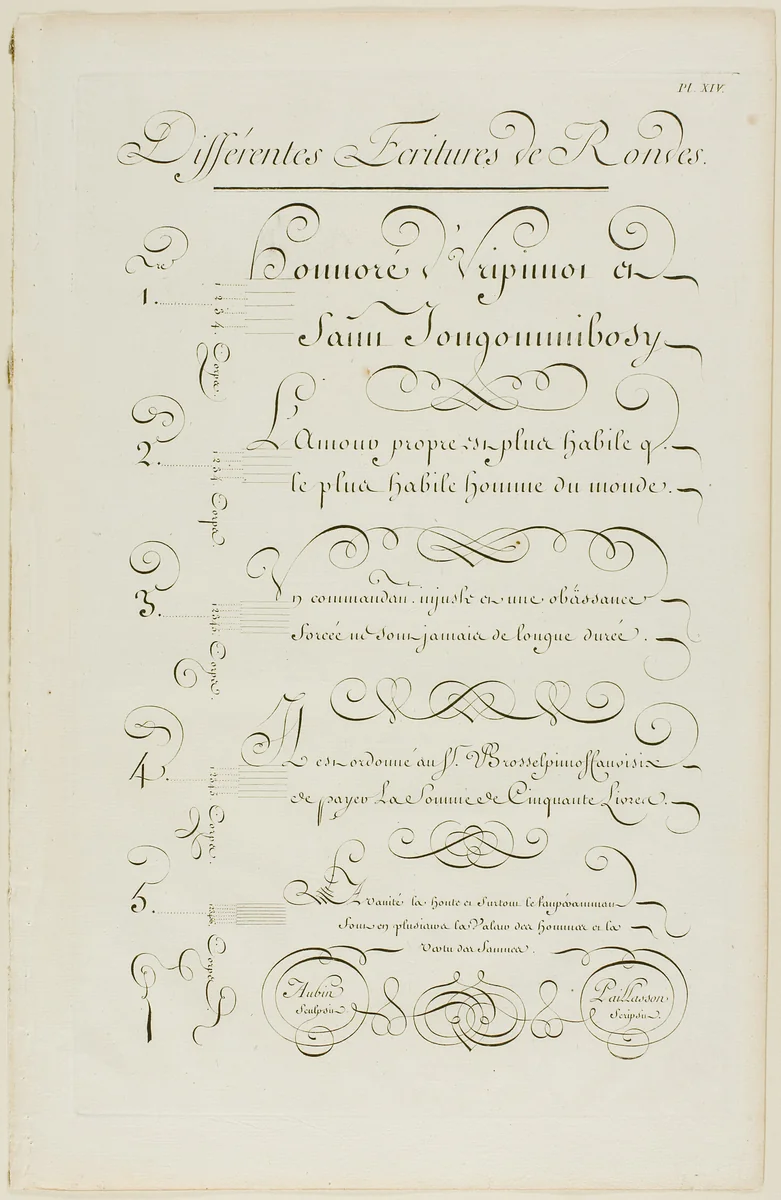 Pl. XIV.
Différentes Ecritures de Rondes.
1.
1 2 3 4. Corps.
Honnoré d'Vripinioi et
Saint Jongominibosy
2.
1 2 3 4 Corps.
L'Amour propre est plus habile q.
le plus habile homme du monde.
3.
1 2 3 4 5 Corps.
Vn commandant injuste et une obëissance
forcée ne sont jamais de longue durée.
4.
1 2 3 4 5 Corps.
Il est ordonné au Sr.
de payer La Somme de Cinquante Livres.
5.
Corps.
La vanité la honte et surtout le tempérammant
Sont en plusieurs la Valeur des hommes et la
Vertu des Femmes.
Aubin
Sculpsit
Paillasson
Scripsit.